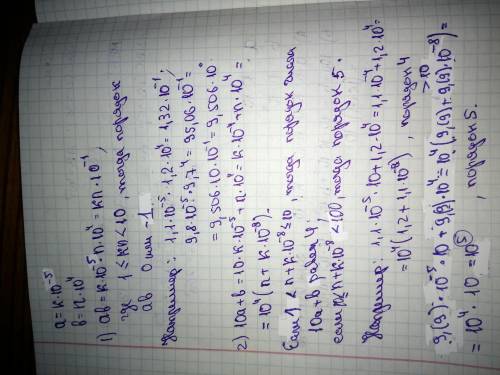 a = k·10⁻⁵
b = n·10⁴
1) ab = k·10⁻⁵·n·10⁴ = kn·10⁻¹;
где 1 ≤ kn < 10, тогда порядок
ab 0 или -1
Например: 1,1·10⁻⁵·1,2·10⁴ = 1,32·10⁻¹;
9,8·10⁻⁵·9,7⁴ = 95,06·10⁻¹ =
= 9,506·10·10⁻¹ = 9,506·10⁰
2) 10a+b = 10·k·10⁻⁵ + n·10⁴ = k·10⁻⁴ + n·10⁴ =
= 10⁴(n + k·10⁻⁸).
Если 1 < n + k·10⁻⁸ ≤ 10, тогда порядок числа
10a+b равен 4,
если n + k·10⁻⁸ < 100, тогда порядок 5.
Например: 1,1·10⁻⁵·10 + 1,2·10⁴ = 1,1·10⁻⁴ + 1,2·10⁴ =
= 10⁴(1,2 + 1,1·10⁻⁸), порядок 4
9,(9)·10⁻⁵·10 + 9,(9)·10⁴ = 10⁴(9,(9) + 9,(9)·10⁻⁸) =
> 10
= 10⁴·10 = 10⁵, порядок 5.